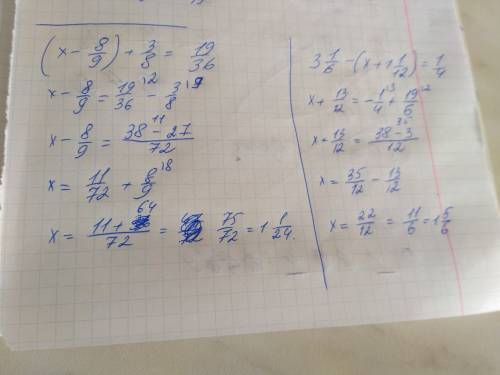 (x - 8/9) + 3/8 = 19/36
x - 8/9 = 19/36 \2 - 3/8 \9
x - 8/9 = 38 - 27/72 11
x = 11/72 + 8/9 \8
x = 11 + 64/72 = 75/72 = 1 1/24.
3 1/6 - (x + 1 1/12) = 1/4
x + 13/12 = - 1/4 \3 + 19/6 \2
x + 13/12 = 38 - 3/12 35
x = 35/12 - 13/12
x = 22/12 = 11/6 = 1 5/6